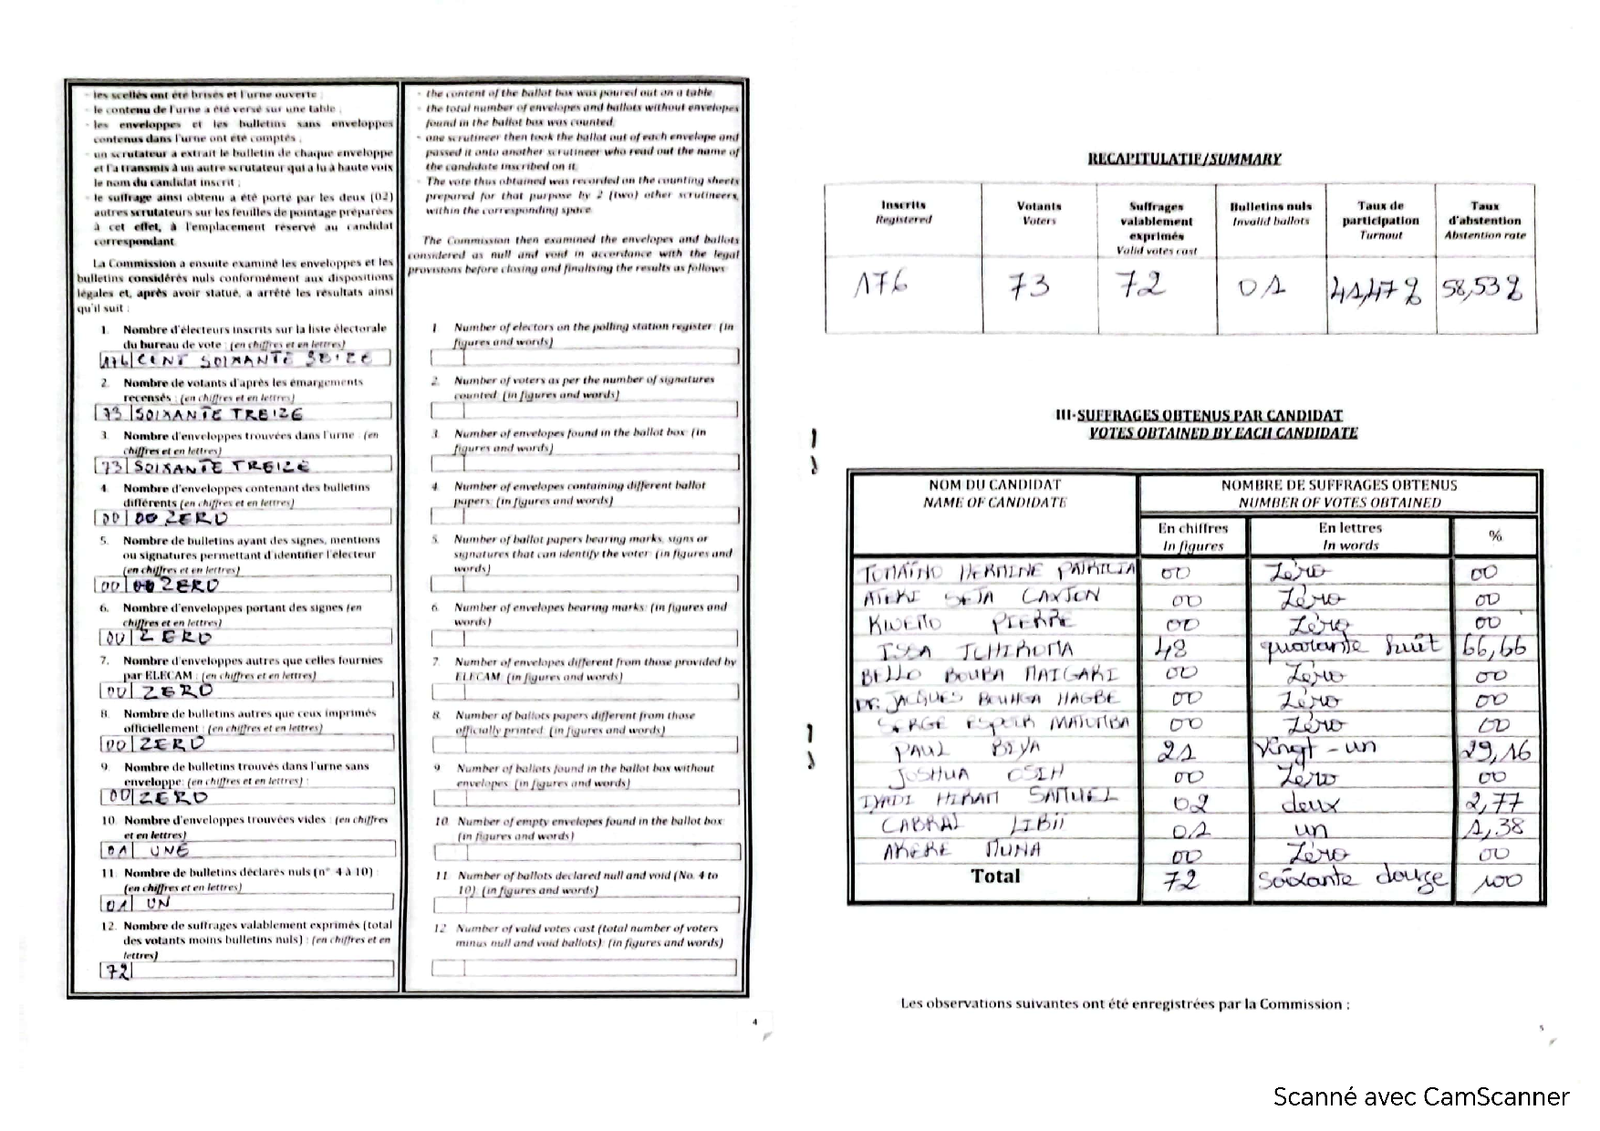 - les scellés ont été brisés et l'urne ouverte ;
- le contenu de l'urne a été versé sur une table ;
- les enveloppes et les bulletins sans enveloppes
contenus dans l'urne ont été comptés ;
- un scrutateur a extrait le bulletin de chaque enveloppe
et l'a transmis à un autre scrutateur qui a lu à haute voix
le nom du candidat inscrit ;
- le suffrage ainsi obtenu a été porté par les deux (02)
autres scrutateurs sur les feuilles de pointage préparées
à cet effet, à l'emplacement réservé au candidat
correspondant.
La Commission a ensuite examiné les enveloppes et les
bulletins considérés nuls conformément aux dispositions
légales et, après avoir statué, a arrêté les résultats ainsi
qu'il suit :
1. Nombre d'électeurs inscrits sur la liste électorale
du bureau de vote : (en chiffres et en lettres)
176 CENT SOIXANTE SEIZE
2. Nombre de votants d'après les émargements
recensés : (en chiffres et en lettres)
73 SOIXANTE TREIZE
3. Nombre d'enveloppes trouvées dans l'urne : (en
chiffres et en lettres)
73 SOIXANTE TREIZE
4. Nombre d'enveloppes contenant des bulletins
différents (en chiffres et en lettres)
00 00 ZERO
5. Nombre de bulletins ayant des signes, mentions
ou signatures permettant d'identifier l'électeur
(en chiffres et en lettres)
00 00 ZERO
6. Nombre d'enveloppes portant des signes (en
chiffres et en lettres)
00 ZERO
7. Nombre d'enveloppes autres que celles fournies
par ELECAM : (en chiffres et en lettres)
00 ZERO
8. Nombre de bulletins autres que ceux imprimés
officiellement : (en chiffres et en lettres)
00 ZERO
9. Nombre de bulletins trouvés dans l'urne sans
enveloppe: (en chiffres et en lettres) :
00 ZERO
10. Nombre d'enveloppes trouvées vides : (en chiffres
et en lettres)
01 UNE
11. Nombre de bulletins déclarés nuls (n° 4 à 10) :
(en chiffres et en lettres)
01 UN
12. Nombre de suffrages valablement exprimés (total
des votants moins bulletins nuls) : (en chiffres et en
lettres)
72
- the content of the ballot box was poured out on a table
- the total number of envelopes and ballots without envelopes
found in the ballot box was counted;
- one scrutineer then took the ballot out of each envelope and
passed it onto another scrutineer who read out the name of
the candidate inscribed on it.
- The vote thus obtained was recorded on the counting sheets
prepared for that purpose by 2 (two) other scrutineers,
within the corresponding space.
The Commission then examined the envelopes and ballots
considered as null and void in accordance with the legal
provisions before closing and finalising the results as follows:
1 Number of electors on the polling station register: (in
figures and words)
2. Number of voters as per the number of signatures
counted: (in figures and words)
3. Number of envelopes found in the ballot box: (in
figures and words)
4. Number of envelopes containing different ballot
papers: (in figures and words)
5. Number of ballot papers bearing marks, signs or
signatures that can identify the voter: (in figures and
words)
6. Number of envelopes bearing marks: (in figures and
words)
7. Number of envelopes different from those provided by
ELECAM: (in figures and words)
8. Number of ballots papers different from those
officially printed: (in figures and words)
9 Number of ballots found in the ballot box without
envelopes: (in figures and words)
10. Number of empty envelopes found in the ballot box:
(in figures and words)
11. Number of ballots declared null and void (No. 4 to
10): (in figures and words)
12 Number of valid votes cast (total number of voters
minus null and void ballots): (in figures and words)
4
RECAPITULATIF/SUMMARY
Inscrits Registered | Votants Voters | Suffrages valablement exprimés Valid votes cast | Bulletins nuls Invalid ballots | Taux de participation Turnout | Taux d'abstention Abstention rate
176 73 72 01 41,47% 58,53%
III-SUFFRAGES OBTENUS PAR CANDIDAT
VOTES OBTAINED BY EACH CANDIDATE
NOM DU CANDIDAT NOMBRE DE SUFFRAGES OBTENUS
NAME OF CANDIDATE NUMBER OF VOTES OBTAINED
En chiffres En lettres %
In figures In words
TOMAÏNO HERMINE PATRICIA 00 Zéro 00
ATEKI SETA CAXTON 00 Zéro 00
KWEMO PIERRE 00 Zéro 00
ISSA TCHIROMA 48 quarante huit 66,66
BELLO BOUBA MAIGARI 00 Zéro 00
Dr. JACQUES BOUNGA HAGBE 00 Zéro 00
SERGE ESPOIR MATOMBA 00 Zéro 00
PAUL BIYA 21 Vingt-un 29,16
JOSHUA OSIH 00 Zéro 00
IYODI HIRAM SAMUEL 02 deux 2,77
CABRAL LIBII 01 un 1,38
AKERE MUNA 00 Zéro 00
Total 72 Soixante douze 100
Les observations suivantes ont été enregistrées par la Commission :
5
Scanné avec CamScanner